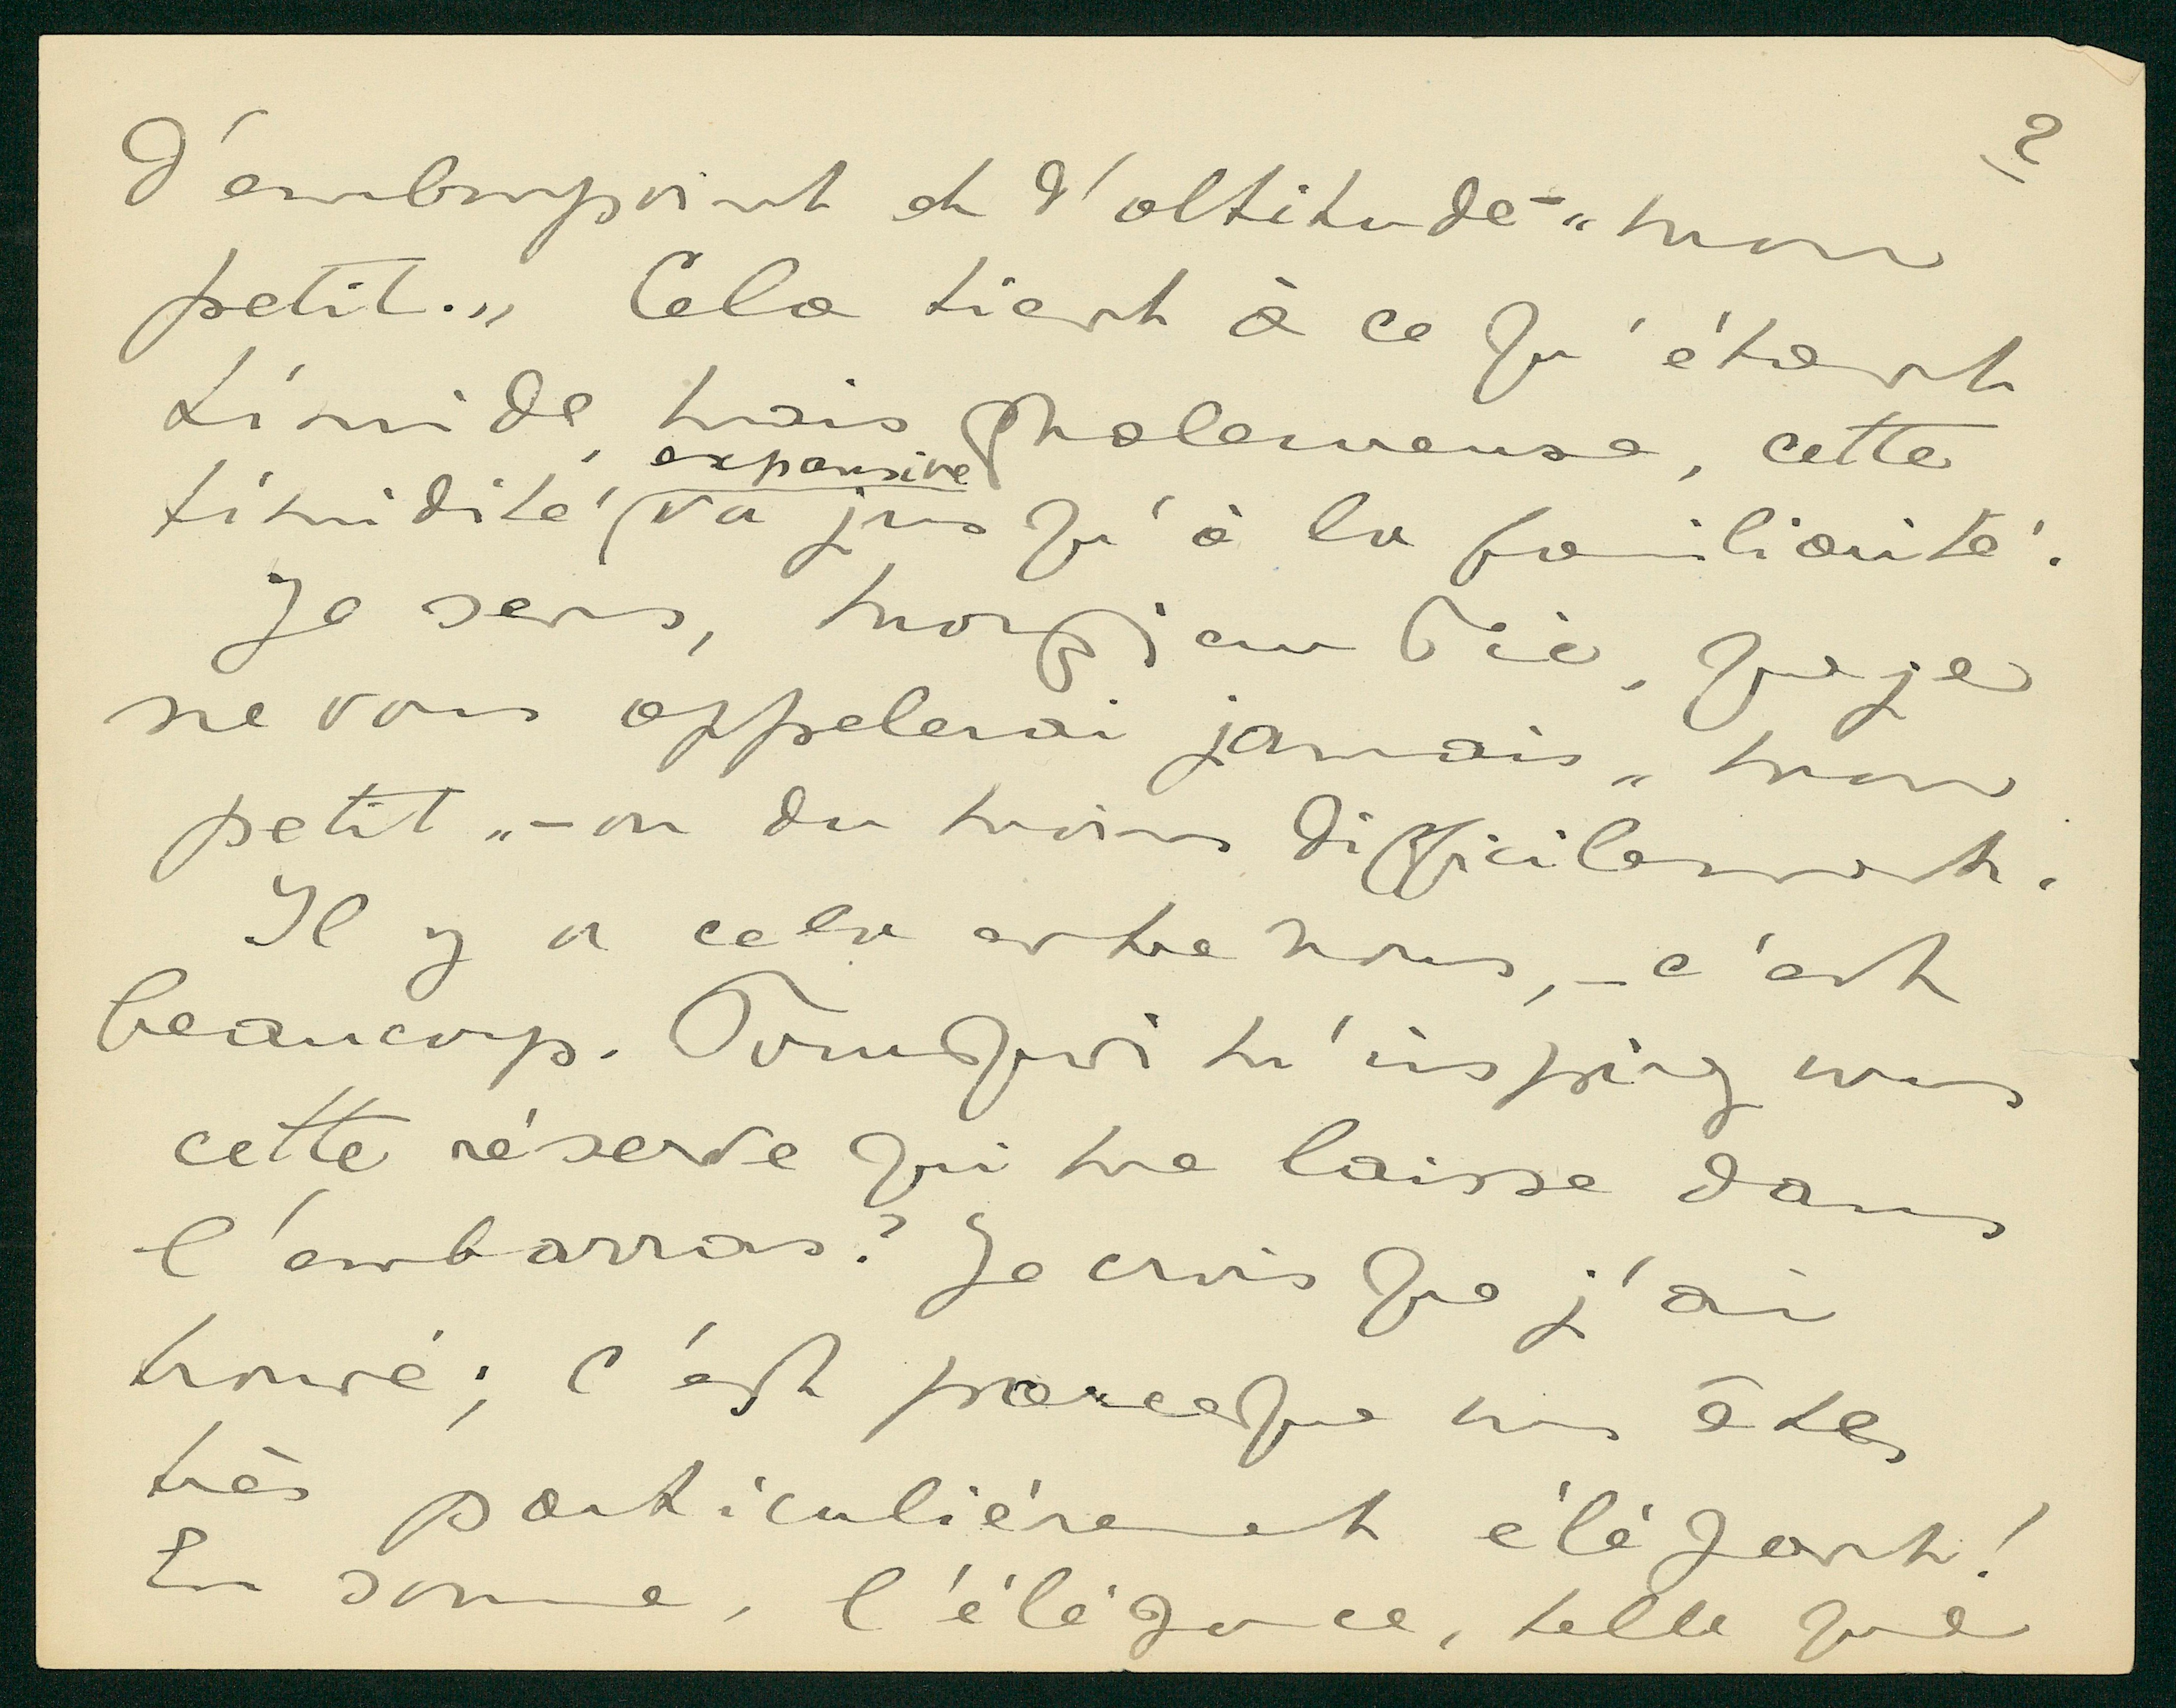 2
d'embonpoint et d'altitude - "mon
petit." Cela tient à ce qu'étant
timide, mais chaleureuse, cette
expansive
timidité va jusqu'à la familiarité.
Je sens, monsieur que je
ne vous appelerai jamais "mon
petit" - ou du moins difficilement.
Il y a cela entre nous, - c'est
beaucoup. Pourquoi m'inspirez vous
cette réserve qui me laisse dans
l'embarras? Je crois que j'ai
trouvé; c'est parceque vous êtes
très particuliérement élégant!
En somme, l'élégance, telle que